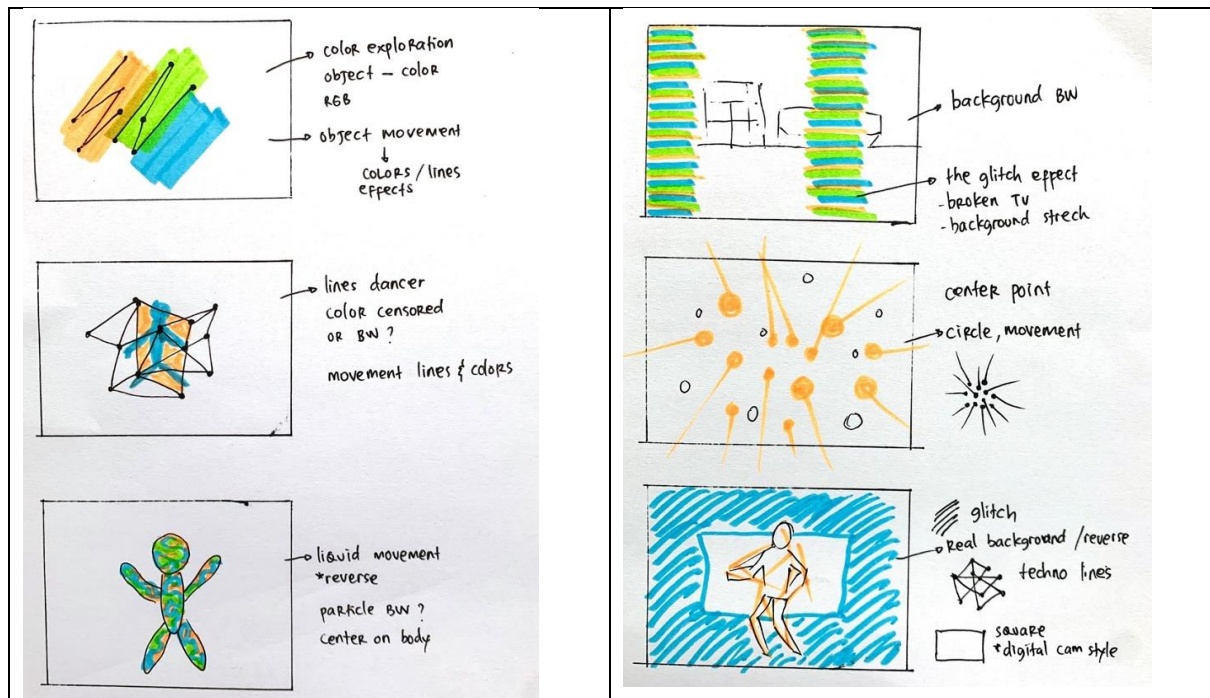 color exploration
object - color
RGB
object movement
COLORS / lines
effects
lines dancer
color censored
OR BW ?
movement lines & colors
liquid movement
*reverse
particle BW ?
center on body
background BW
the glitch effect
- broken TV
- background strech
center point
circle, movement
glitch
Real background / reverse
techno lines
square
*digital cam style